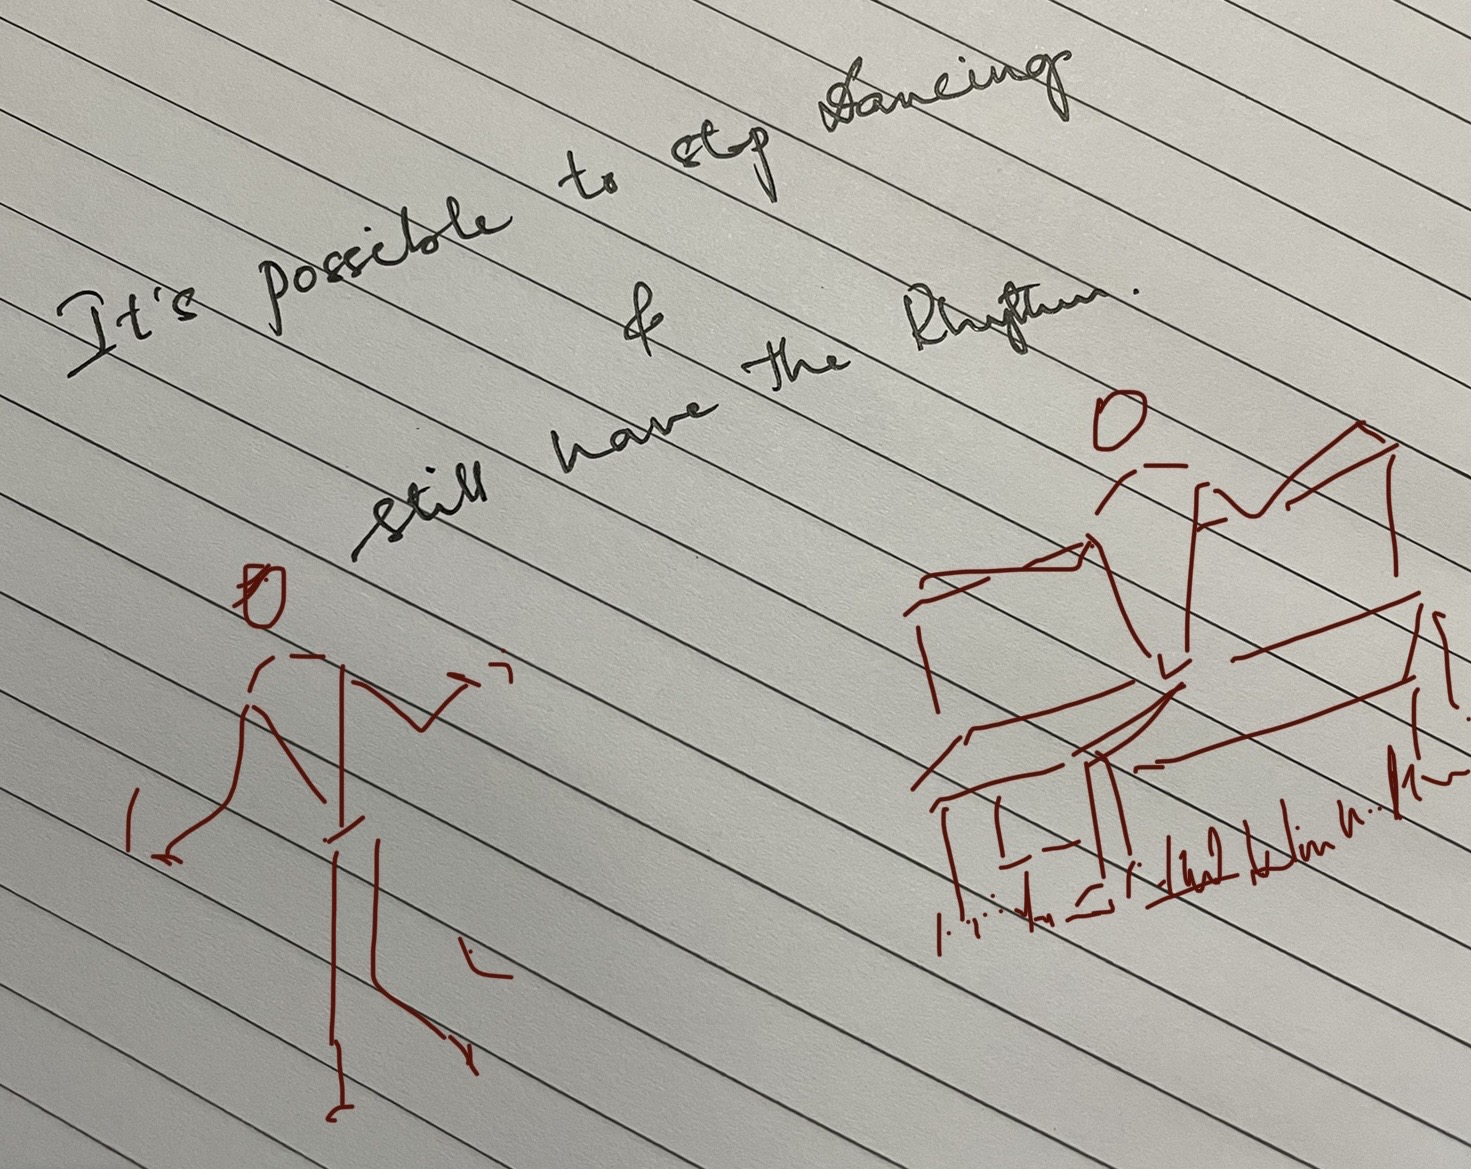 It's possible to stop Dancing
&
still have the Rhythm.